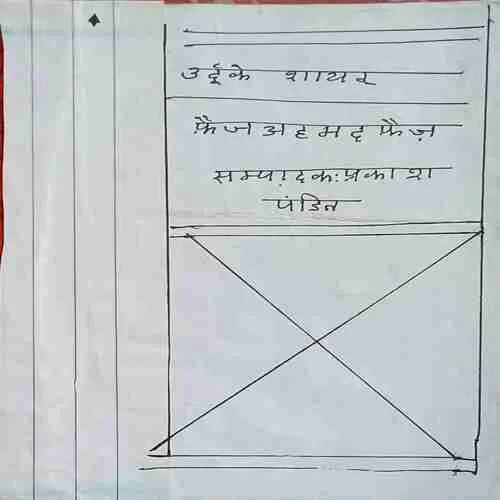 उर्दू के शायर
फ़ैज अहमद फ़ैज़
सम्पादक:प्रकाश
पंडित